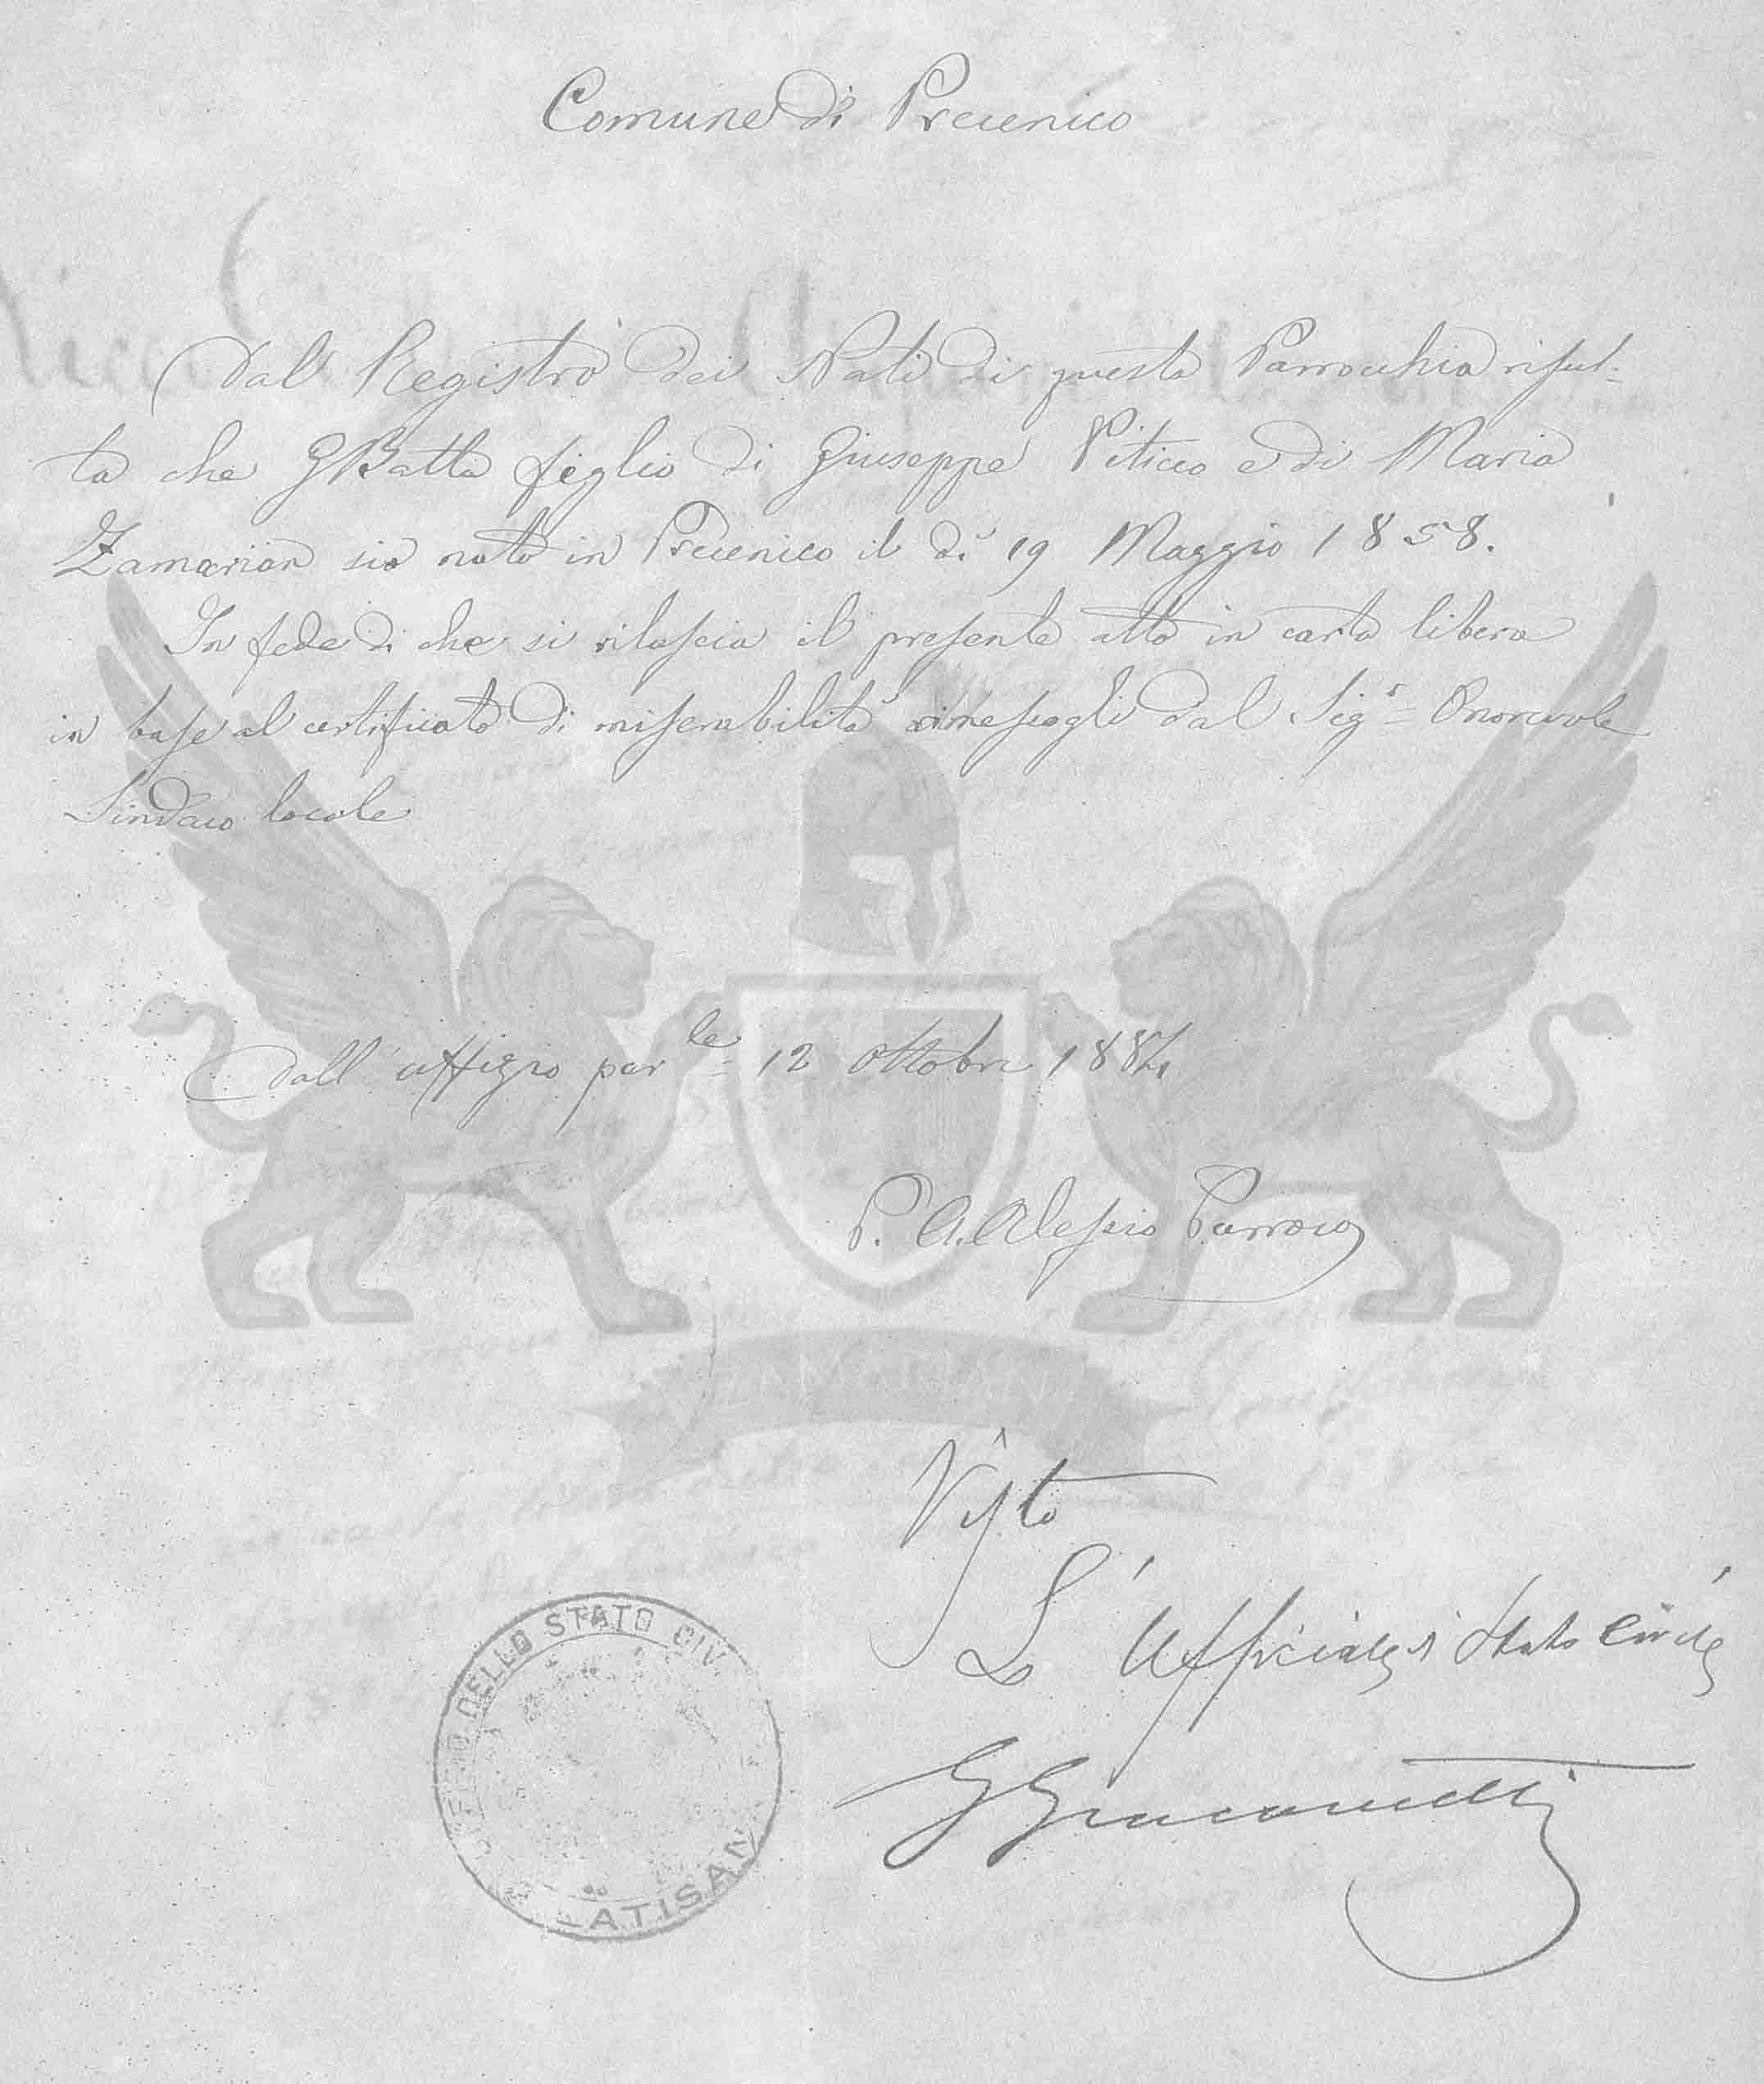 Comune di Precenico
Dal Registro dei Nati di questa Parrochia risul-
ta che GBatta figlio di Giuseppe Piticco e di Maria
Zamarian sia nato in Precenico il dì 19 Maggio 1858.
In fede di che si rilascia il presente atto in carta libera
in base al certificato di miserabilità rimessogli dal Sigr Onorevole
Sindaco locale
Dall'uffizio parle 12 Ottobre 1884
P. A. Alessio Parroco
Visto
L'Ufficiale di Stato Civile
G Giacometti
DELLO STATO CIV.
LATISAN